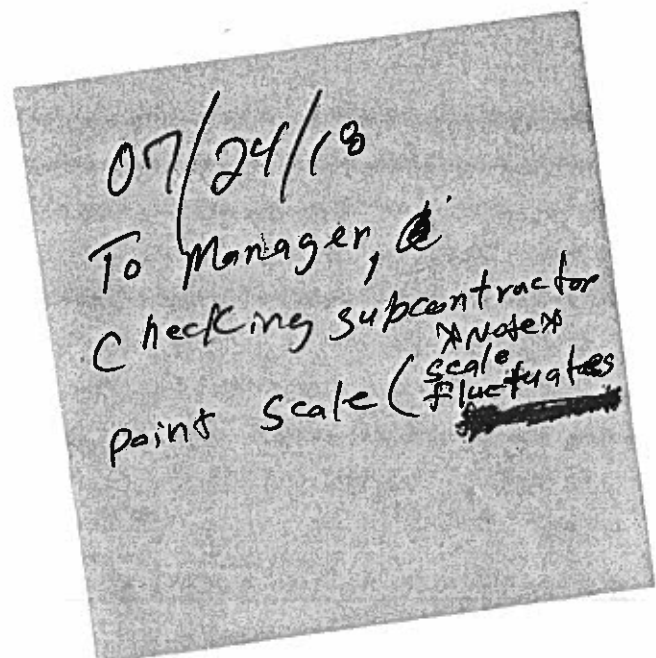 07/24/18
To Manager,
Checking subcontractor
*Note*
point scale (scale
fluctuates